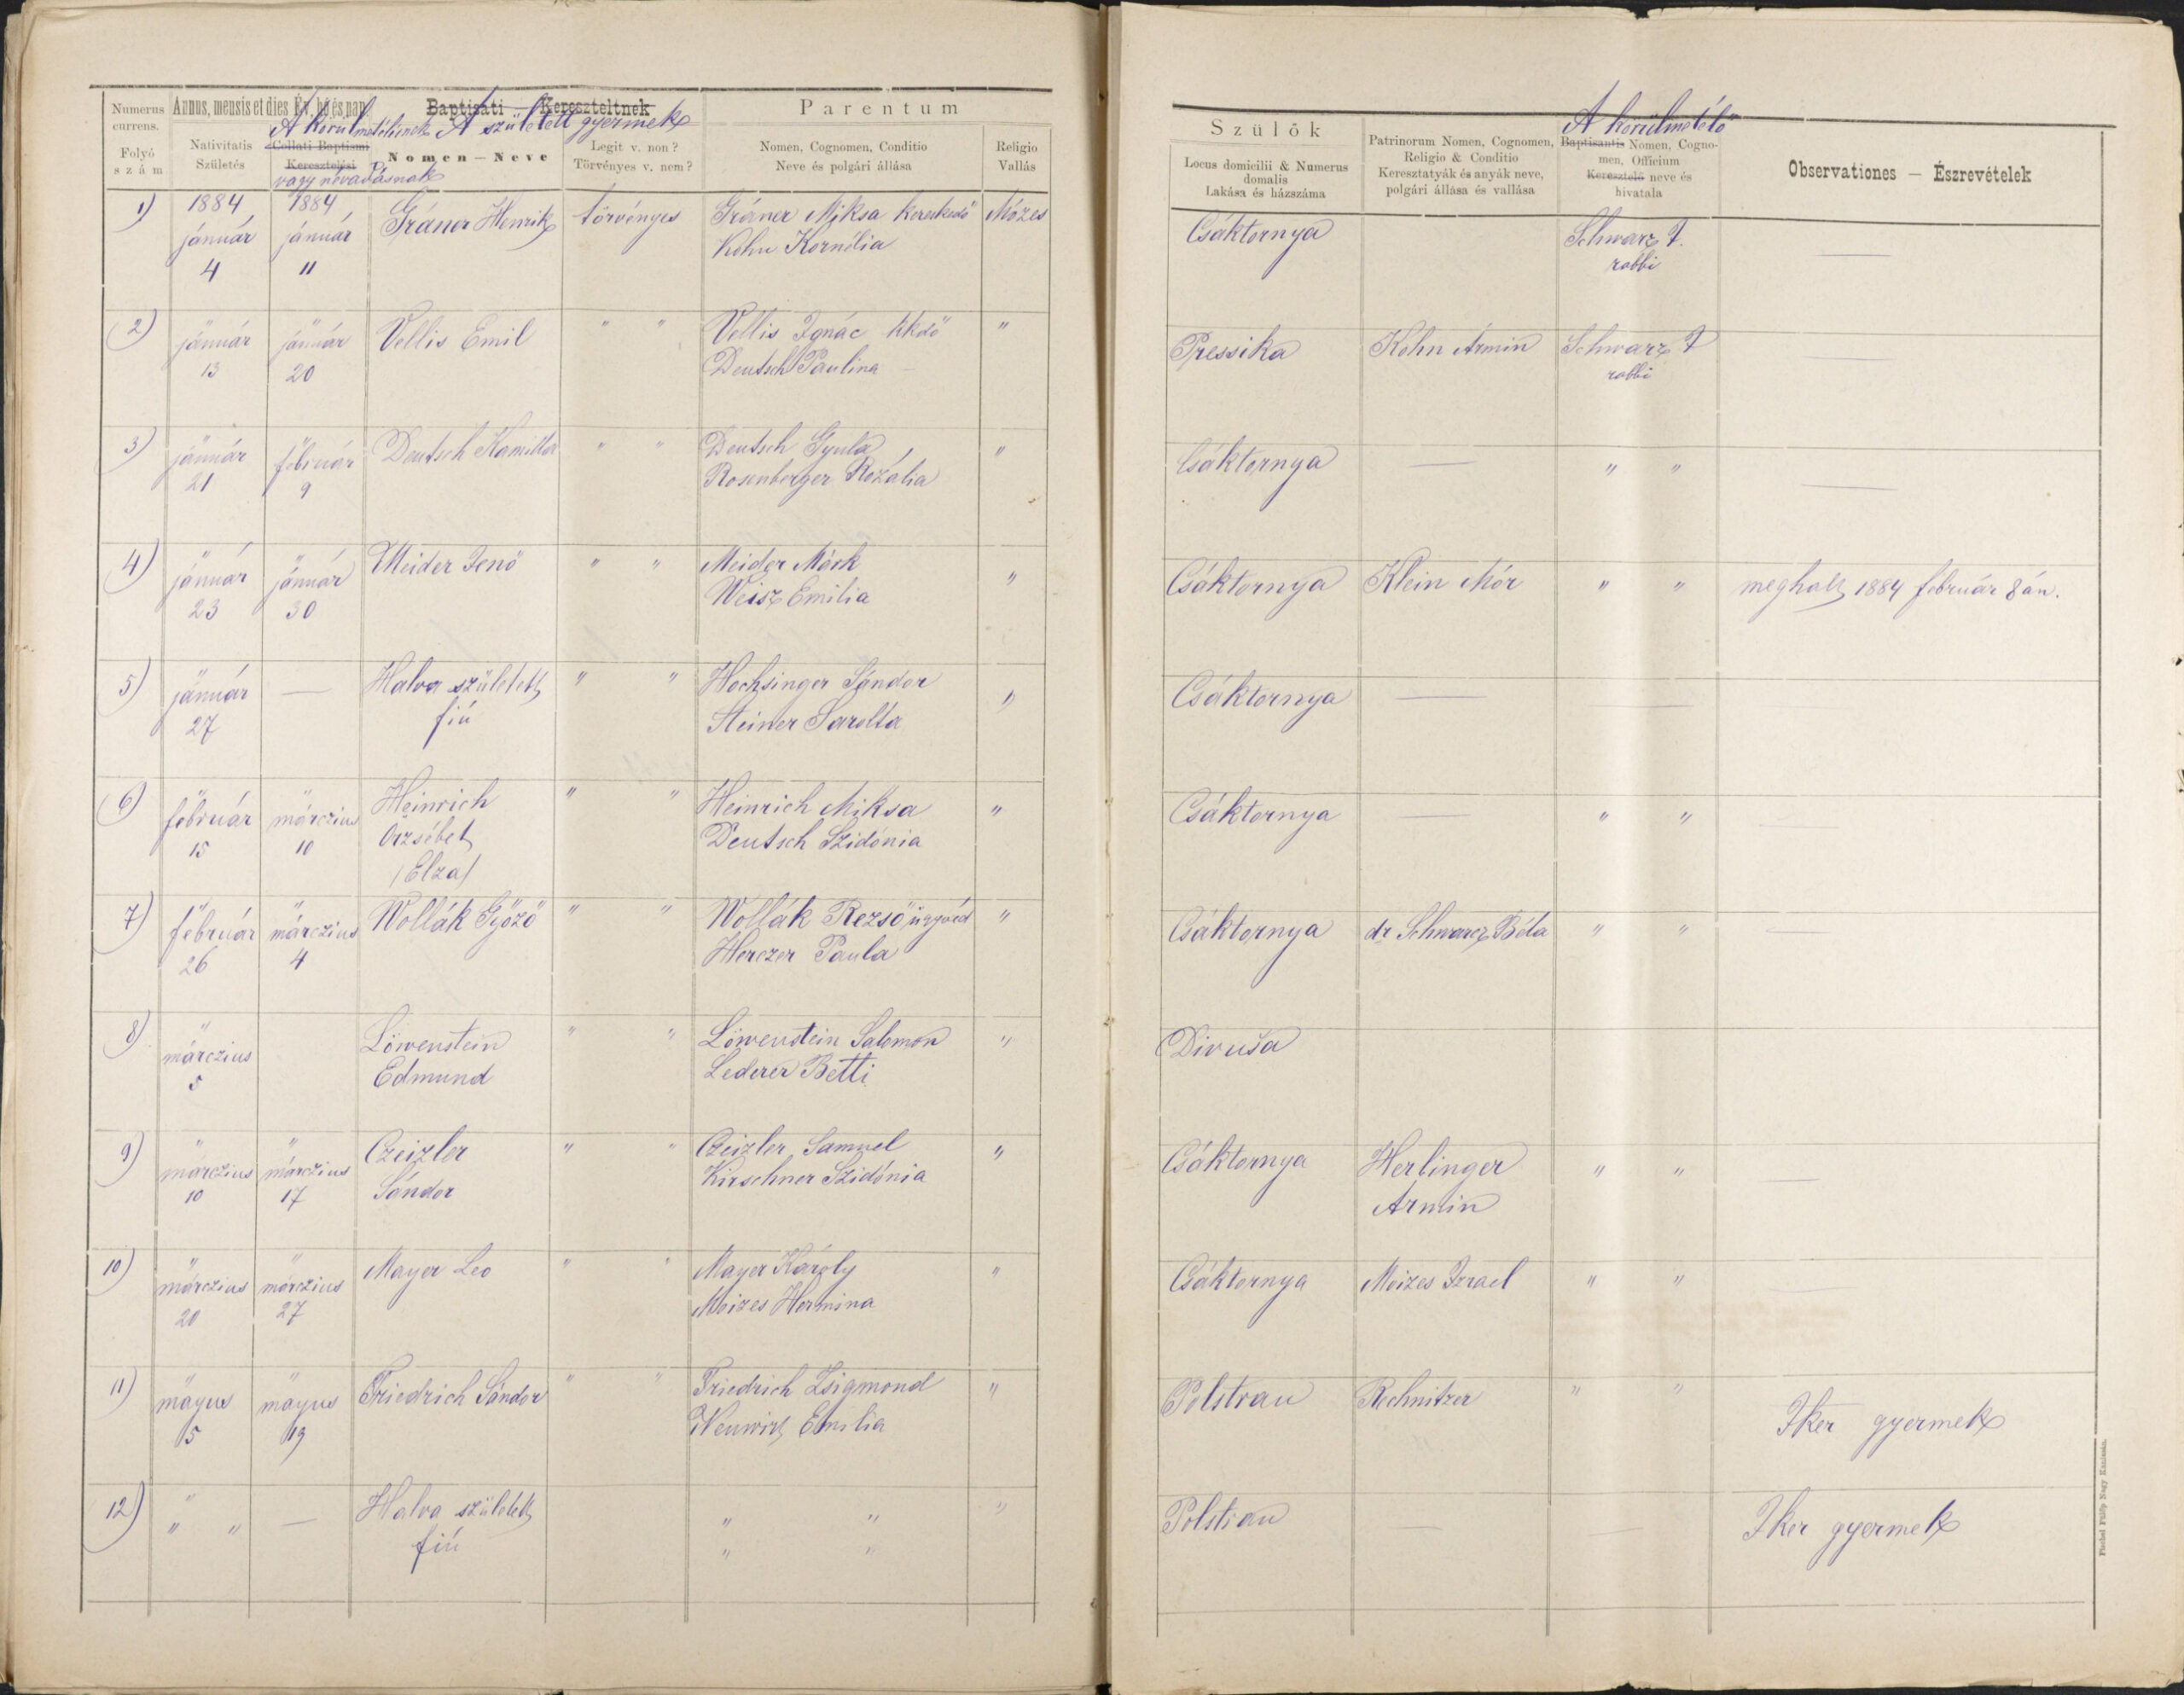 Numerus currens.
Folyó szám
Annus, mensis et dies Év, hó és nap
A körülmetélésnek
Nativitatis
Születés
Collati Baptismi
Keresztelési
vagy névadásnak
Baptisati — Kereszteltnek
A született gyermek
Nomen — Neve
Legit v. non?
Törvényes v. nem?
Parentum
Nomen, Cognomen, Conditio
Neve és polgári állása
Religio
Vallás
Szülők
Locus domicilii & Numerus
domalis
Lakása és házszáma
Patrinorum Nomen, Cognomen,
Religio & Conditio
Keresztatyák és anyák neve,
polgári állása és vallása
A körülmetélő
Baptisantis Nomen, Cogno-
men, Officium
Keresztelő neve és
hivatala
Observationes — Észrevételek
1) 1884 január 4
1884 január 11
Gráner Henrik
törvényes
Gráner Miksa kereskedő
Kohn Kornélia
Mózes
Csáktornya
Schwarz J.
rabbi
—
2) " január 13
" január 20
Vellis Emil
" "
Vellis Ignác kkdő
Deutsch Paulina —
"
Pressika
Kohn Ármin
Schwarz J
rabbi
—
3) " január 21
" február 9
Deutsch Kamilla
" "
Deutsch Gyula
Rosenberger Rozália
"
Csáktornya
—
" "
—
4) " január 23
" január 30
Meider Jenö
" "
Meider Márk
Weisz Emilia
"
Csáktornya
Klein Mór
" "
meghalt 1884 február 8án.
5) " január 27
—
Halva született
fiú
" "
Hochsinger Sándor
Steiner Sarolta
"
Csáktornya
—
—
—
6) " február 15
" márczius 10
Heinrich
Örzsébet
/Elza/
" "
Heinrich Miksa
Deutsch Szidónia
"
Csáktornya
—
" "
—
7) " február 26
" márczius 4
Wollák Győző
" "
Wollák Rezső ügyvéd
Herczer Paula
"
Csáktornya
dr Schwarcz Béla
" "
—
8) " márczius 5
Löwenstein
Edmund
" "
Löwenstein Salomon
Lederer Betti
"
Divuša
9) " márczius 10
" márczius 17
Czeizler
Sándor
" "
Czeizler Samuel
Kirschner Szidónia
"
Csáktornya
Herlinger
Armin
" "
—
10) " márczius 20
" márczius 27
Mayer Leo
" "
Mayer Károly
Moizes Hermina
"
Csáktornya
Moizes Izrael
" "
—
11) " május 5
" május 19
Friedrich Sándor
" "
Friedrich Zsigmond
Neuwirt Emilia
"
Polstrau
Rechnitzer
" "
Iker gyermek
12) " " "
—
Halva született
fiú
" "
" "
"
Polstrau
—
—
Iker gyermek
Fischel Fülöp Nagy Kanizsán.